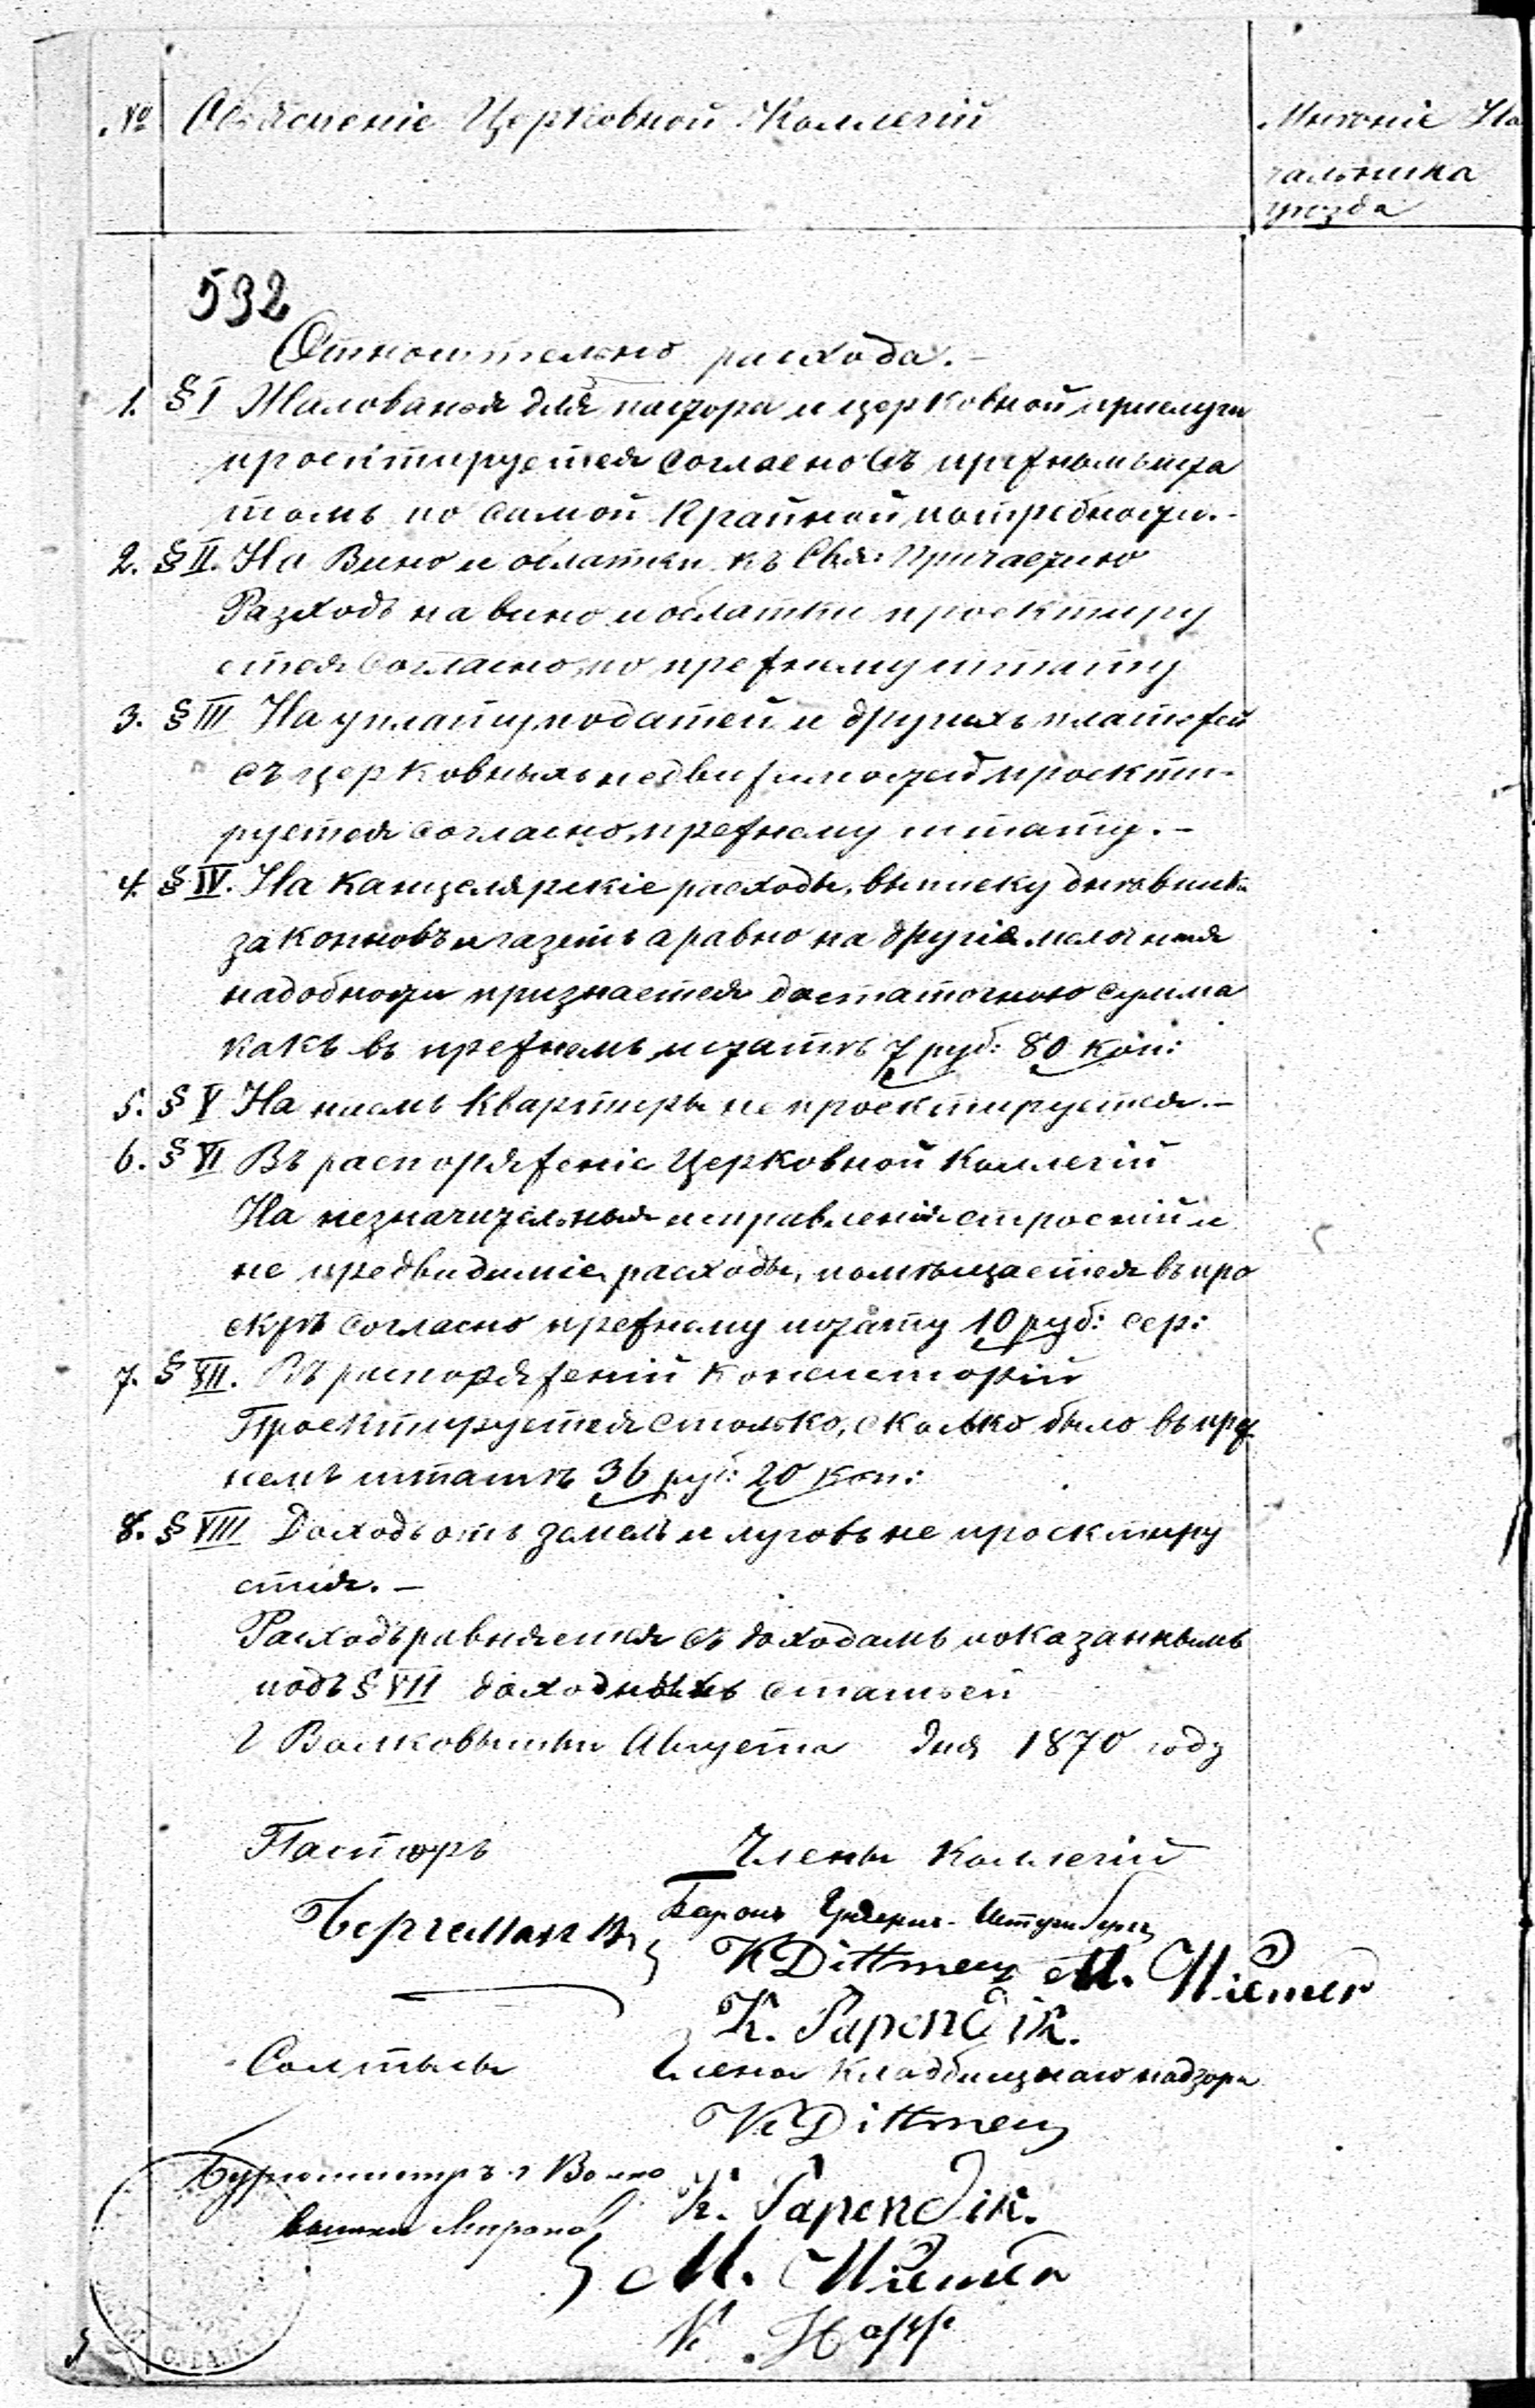 № Объясненіе Церковной Коллегій
Мнѣніе На
чальника
уѣзда
592
Относительно расхода.-
1. § I Жалованья для пастора и церковной прислуги
проэктируется согласно съ прежнымъ шта
томъ по самой крайной потребности.-
2. § II. На Вино и облатки къ Свя: Причастію
Разходъ на вино и облатки проектиру
ется согласно, по прежнему штату
3. § III На уплату податей и другихъ платежей
съ церковныхъ недвижимостей проэкти-
руется согласно, прежнему штату.-
4. § IV. На Канцелярскіе расходы, выписку дневника
законновъ и газетъ а равно на другія мелочныя
надобности признается достаточною сумма
какъ въ прежнемъ штатѣ 7 руб: 80 коп:
5. § V На наемъ Квартиры не проэктируется.-
6. § VI Въ распоряженіе Церковной Коллегій
На незначительныя исправленія строеній и
не предвидиміе расходы, помѣщается въ про
эктѣ согласно прежнему штату 10 руб: сер:
7. § VII. Въ распоряженій Консисторій
Проэктируется столько, сколько было въ преж
немъ штатѣ 36 руб: 20 коп:
8. § VIII Доходъ отъ земель и луговъ не проэктиру
ется.-
Расходъ равняется съ доходамъ показаннымъ
подъ § VII доходныхъ статьей
г Волковышки Августа дня 1870 году
Пасторъ Члены Коллегій
Бергманъ Баронъ
K Dittmer M. Wiemer
K. Papendik.
Солтысы Члена Кладбищнаго надзора
K Dittmer
Бургомистръ г Волко
вышки Миронов
K. Papendik.
M. Wiemer
K. Hopp